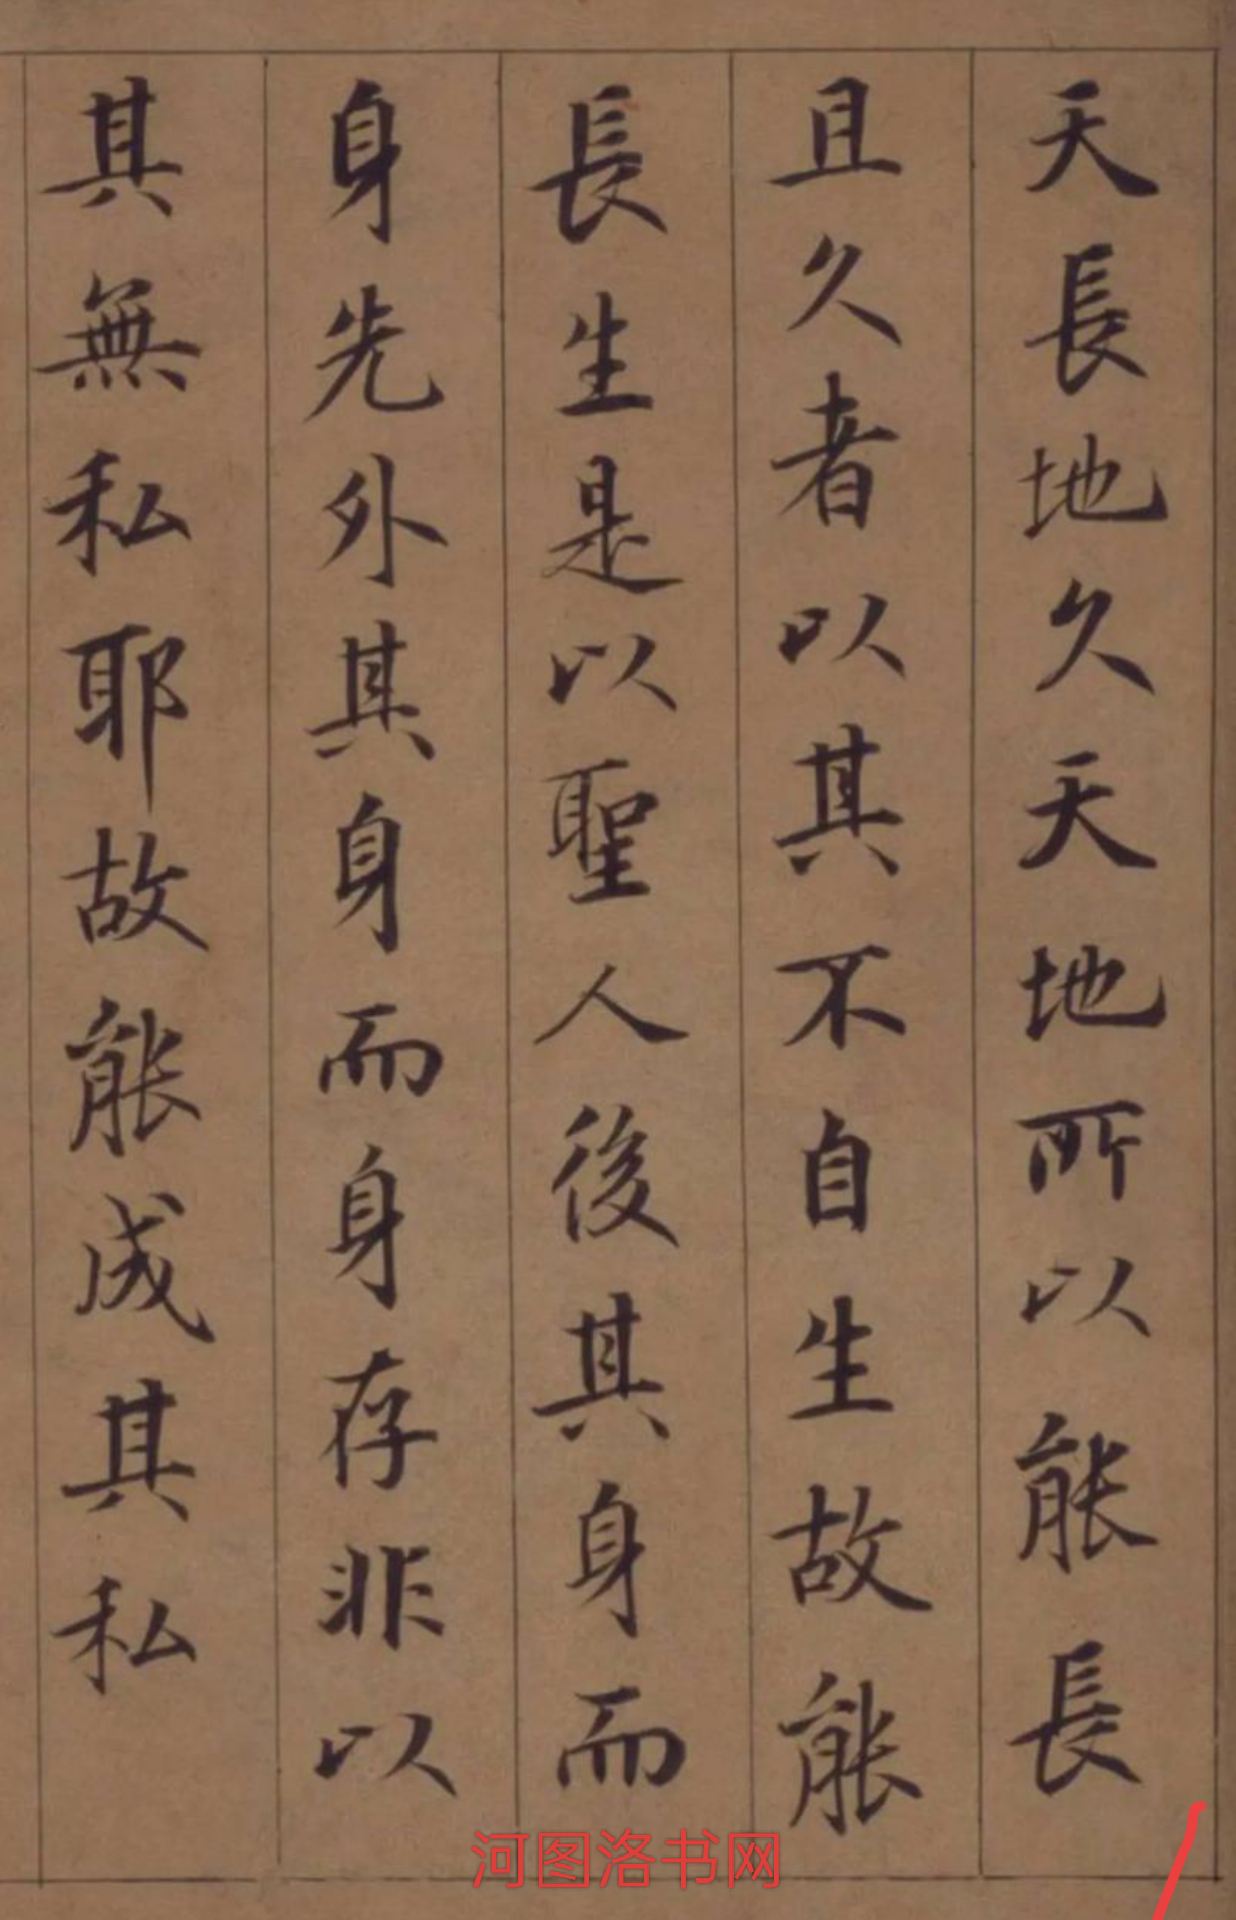 天長地久天地所以能長
且久者以其不自生故能
長生是以聖人後其身而
身先外其身而身存非以
其無私耶故能成其私
河图洛书网